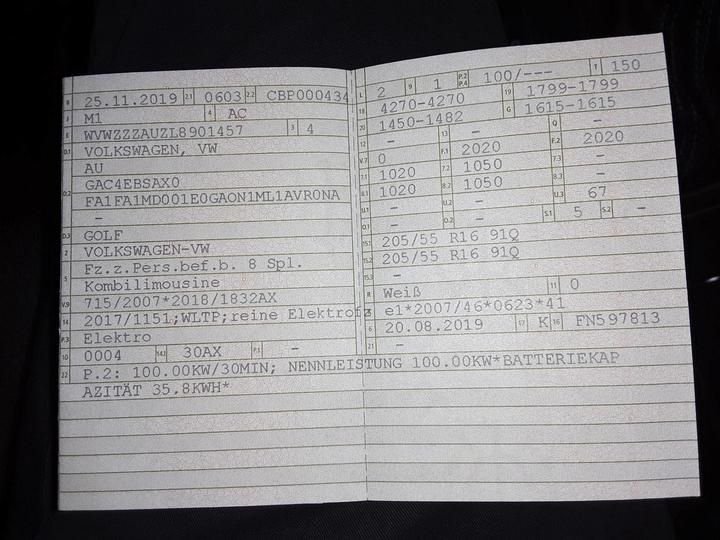 B 25.11.2019 2.1 0603 2.2 CBP000434
J M1 4 AC
E WVWZZZAUZL8901457 3 4
D.1 VOLKSWAGEN, VW
AU
D.2 GAC4EBSAX0
FA1FA1MD001E0GAON1ML1AVR0NA
–
D.3 GOLF
2 VOLKSWAGEN-VW
5 Fz.z.Pers.bef.b. 8 Spl.
Kombilimousine
V.9 715/2007*2018/1832AX
14 2017/1151;WLTP;reine Elektrofz
P.3 Elektro
10 0004 14.1 30AX P.1 –
22 P.2: 100.00KW/30MIN; NENNLEISTUNG 100.00KW*BATTERIEKAP
AZITÄT 35.8KWH*
L 2 9 1 P.2 P.4 100/--- T 150
18 4270-4270 19 1799-1799
20 1450-1482 G 1615-1615
12 – 13 – Q –
V.7 0 F.1 2020 F.2 2020
7.1 1020 7.2 1050 7.3 –
8.1 1020 8.2 1050 8.3 –
U.1 – U.2 – U.3 67
O.1 – O.2 – S.1 5 S.2 –
15.1 205/55 R16 91Q
15.2 205/55 R16 91Q
15.3 –
R Weiß 11 0
K e1*2007/46*0623*41
6 20.08.2019 17 K 16 FN597813
21 –